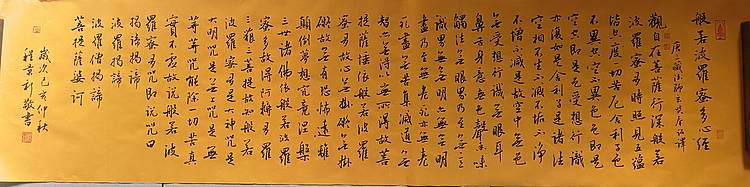 般若波羅蜜多心經
唐三藏法師玄奘奉詔譯
觀自在菩薩行深般若
波羅蜜多時照見五蘊
皆空度一切苦厄舍利子色
不異空空不異色色即是
空空即是色受想行識
亦復如是舍利子是諸法
空相不生不滅不垢不淨
不增不減是故空中無色
無受想行識無眼耳
鼻舌身意無色聲香味
觸法無眼界乃至無意
識界無無明亦無無明
盡乃至無老死亦無老
死盡無苦集滅道無
智亦無得以無所得故菩
提薩埵依般若波羅
蜜多故心無掛礙無掛
礙故無有恐怖遠離
顛倒夢想究竟涅槃
三世諸佛依般若波羅
蜜多故得阿耨多羅
三藐三菩提故知般若
波羅蜜多是大神咒是
大明咒是無上咒是無
等等咒能除一切苦真
實不虛故說般若波
羅蜜多咒即說咒曰
揭諦揭諦
波羅揭諦
波羅僧揭諦
菩提薩婆訶
歲次己亥仲秋
程景利敬書